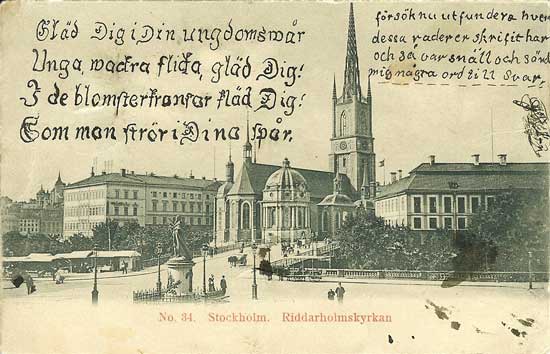 Gläd Dig i Din ungdomsvår
Unga, vackra flicka, gläd Dig!
I de blomsterkransar kläd Dig!
Som man strör i Dina spår.
försök nu utfundera hvem
dessa rader er skrifit har
och så var snäll och sänd
mig några ord till svar.
No. 34. Stockholm. Riddarholmskyrkan